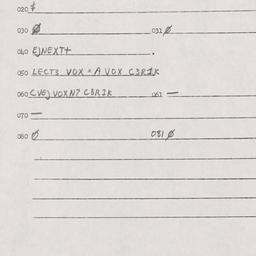 020 ‡
030 Ø 031 Ø
040 EJNEXT‡ .
050 LECTS VOX = A VOX C3RIK
060 CVEJVOXN7 C3RIK 061 —
070 —
080 Ø 081 Ø